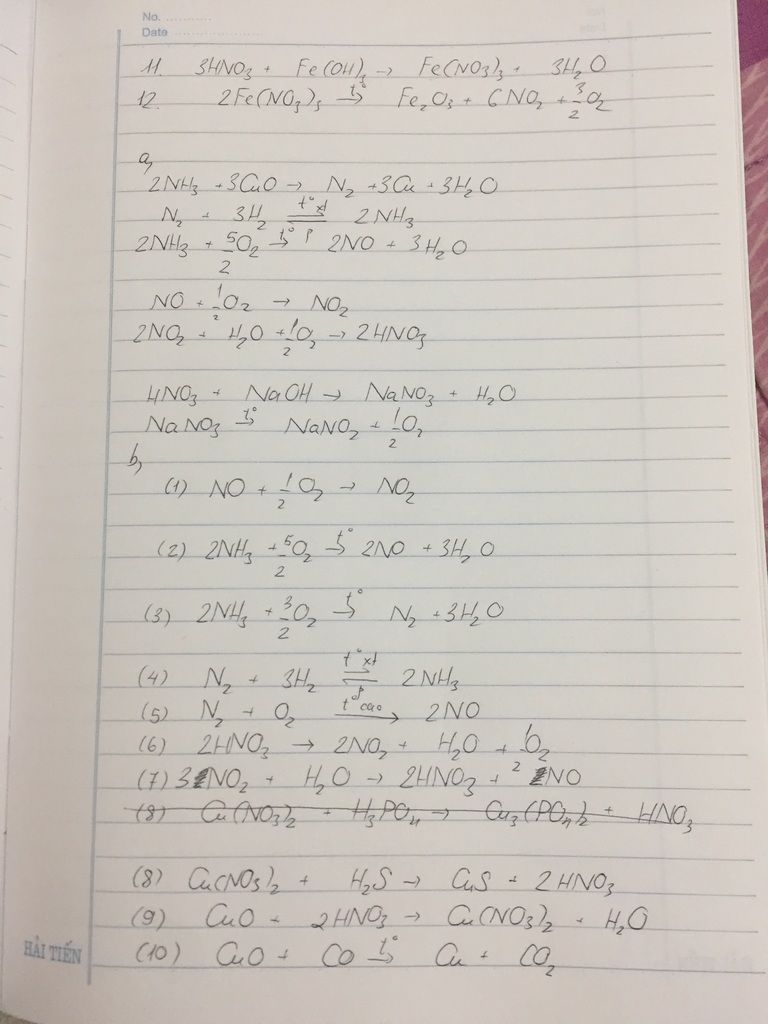 No. ............
Date ........................
11. 3HNO₃ + Fe(OH)₃ → Fe(NO₃)₃ + 3H₂O
12. 2Fe(NO₃)₃ →t° Fe₂O₃ + 6NO₂ + 3/2 O₂
a,
2NH₃ + 3CuO → N₂ + 3Cu + 3H₂O
N₂ + 3H₂ ⇌t° xt p 2NH₃
2NH₃ + 5/2 O₂ →t° 2NO + 3H₂O
NO + 1/2 O₂ → NO₂
2NO₂ + H₂O + 1/2 O₂ → 2HNO₃
HNO₃ + NaOH → NaNO₃ + H₂O
NaNO₃ →t° NaNO₂ + 1/2 O₂
b,
(1) NO + 1/2 O₂ → NO₂
(2) 2NH₃ + 5/2 O₂ →t° 2NO + 3H₂O
(3) 2NH₃ + 3/2 O₂ →t° N₂ + 3H₂O
(4) N₂ + 3H₂ ⇌t° xt p 2NH₃
(5) N₂ + O₂ →t° cao 2NO
(6) 2HNO₃ → 2NO₂ + H₂O + 1/2 O₂
(7) 3NO₂ + H₂O → 2HNO₃ + NO
(8) Cu(NO₃)₂ + H₃PO₄ → Cu₃(PO₄)₂ + HNO₃
(8) Cu(NO₃)₂ + H₂S → CuS + 2HNO₃
(9) CuO + 2HNO₃ → Cu(NO₃)₂ + H₂O
(10) CuO + CO →t° Cu + CO₂
HẢI TIẾN